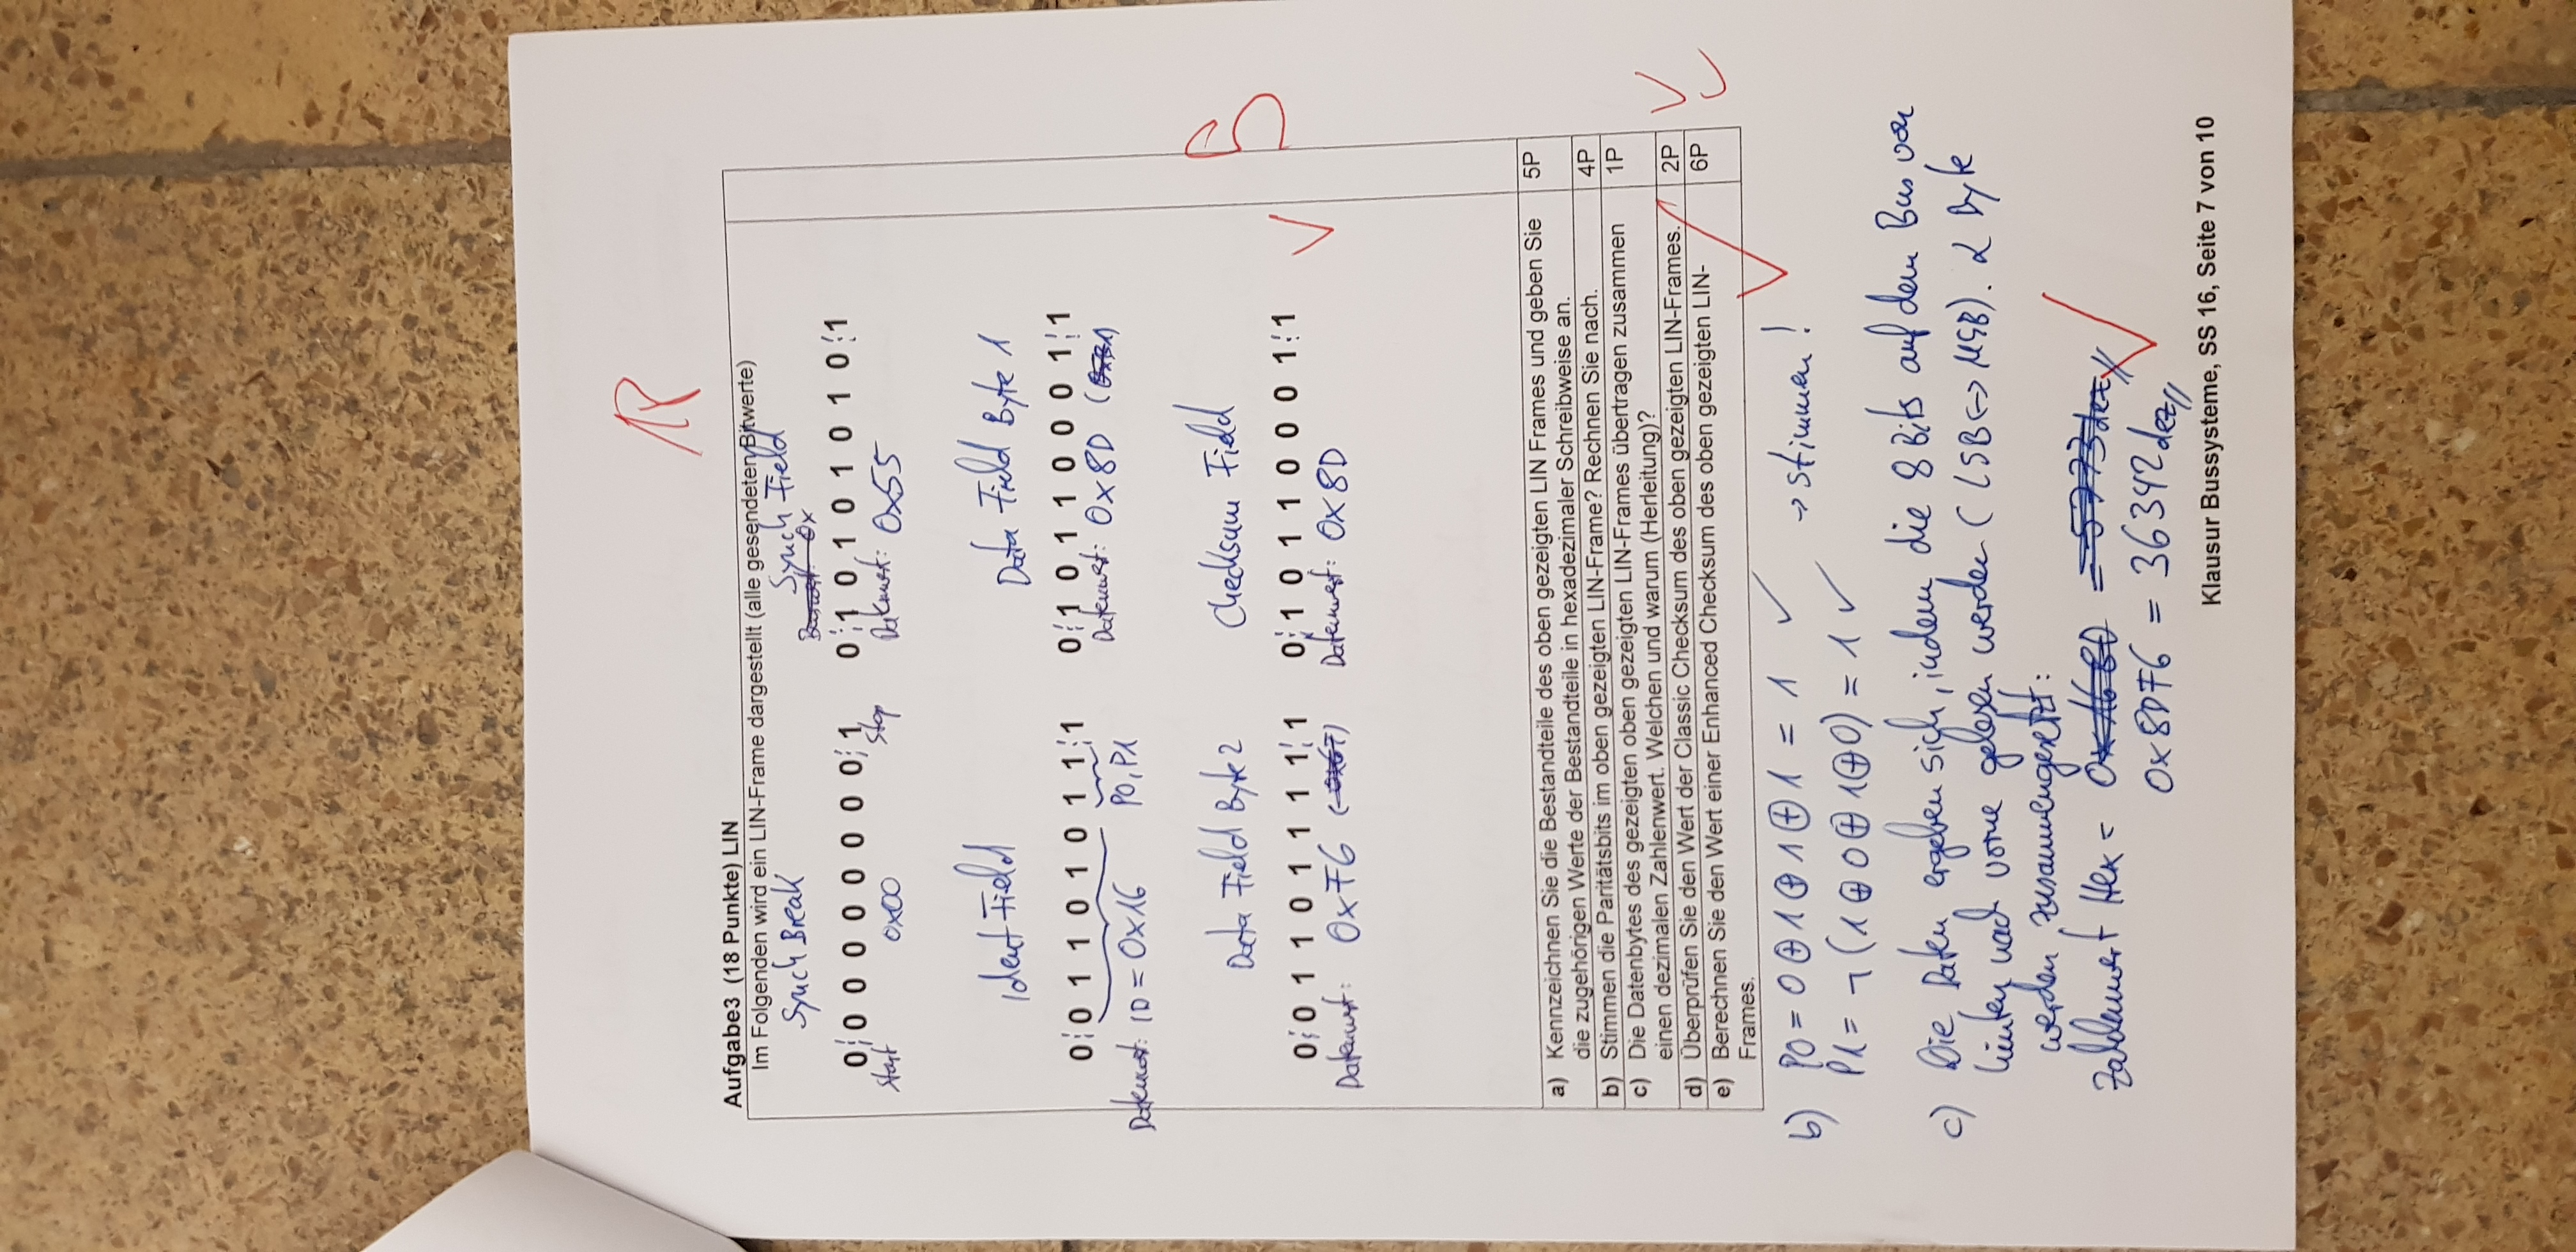 18
Aufgabe3 (18 Punkte) LIN
Im Folgenden wird ein LIN-Frame dargestellt (alle gesendeten Bitwerte)
Synch Break
Synch Field
0x
0 0 0 0 0 0 0 0 0 1
0 1 0 1 0 1 0 1 0 1
Start 0x00 Stop
Datenwert: 0x55
Ident Field
Data Field Byte 1
0 0 1 1 0 1 0 1 1 1
0 1 0 1 1 0 0 0 1 1
Datenwert: ID = 0x16 P0, P1
Datenwert: 0x8D
Data Field Byte 2
Checksum Field
0 0 1 1 0 1 1 1 1 1
0 1 0 1 1 0 0 0 1 1
5
Datenwert: 0xF6
Datenwert: 0x8D
a) Kennzeichnen Sie die Bestandteile des oben gezeigten LIN Frames und geben Sie 5P
die zugehörigen Werte der Bestandteile in hexadezimaler Schreibweise an.
b) Stimmen die Paritätsbits im oben gezeigten LIN-Frame? Rechnen Sie nach. 4P
c) Die Datenbytes des gezeigten oben gezeigten LIN-Frames übertragen zusammen 1P
einen dezimalen Zahlenwert. Welchen und warum (Herleitung)?
d) Überprüfen Sie den Wert der Classic Checksum des oben gezeigten LIN-Frames. 2P
e) Berechnen Sie den Wert einer Enhanced Checksum des oben gezeigten LIN- 6P
Frames.
b) P0 = 0 ⊕ 1 ⊕ 1 ⊕ 1 = 1 ✓ → stimmen!
P1 = ¬ (1 ⊕ 0 ⊕ 1 ⊕ 0) = 1 ✓
c) Die Daten ergeben sich, indem die 8 Bits auf dem Bus von
hinten nach vorne gelesen werden (LSB ↔ MSB). 2 Byte
werden zusammengesetzt:
Zahlenwert Hex = 0x168D = 5773dez//
0x8DF6 = 36342dez//
Klausur Bussysteme, SS 16, Seite 7 von 10